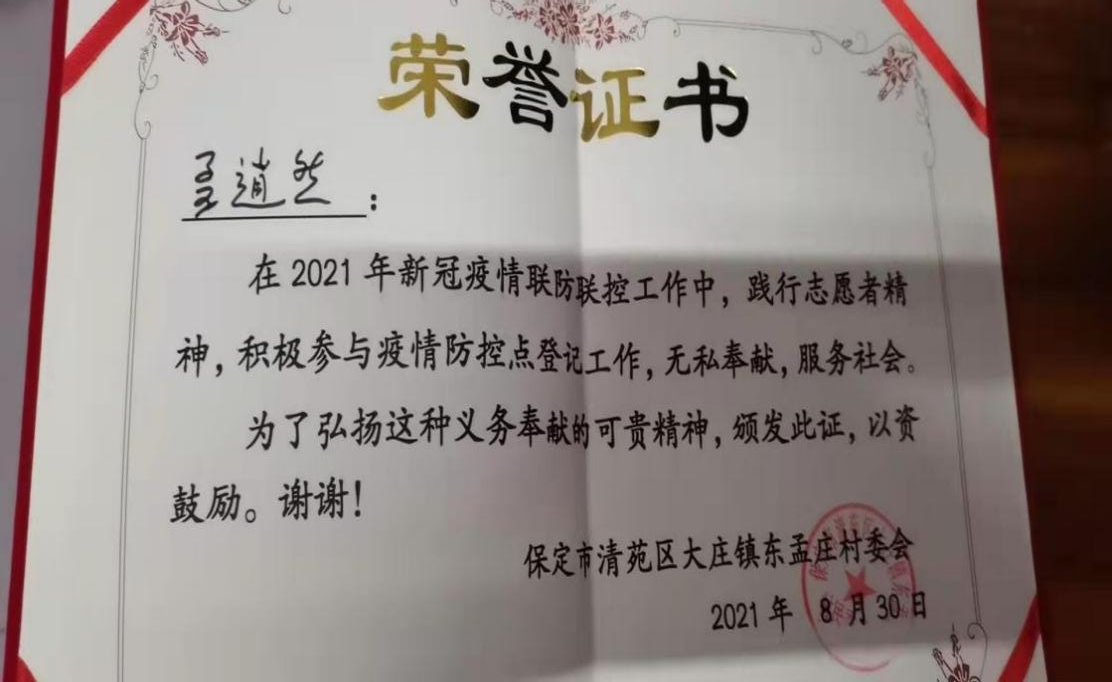 荣誉证书
孟逍然：
在2021年新冠疫情联防联控工作中，践行志愿者精
神，积极参与疫情防控点登记工作，无私奉献，服务社会。
为了弘扬这种义务奉献的可贵精神，颁发此证，以资
鼓励。谢谢！
保定市清苑区大庄镇东孟庄村委会
2021年 8月30日